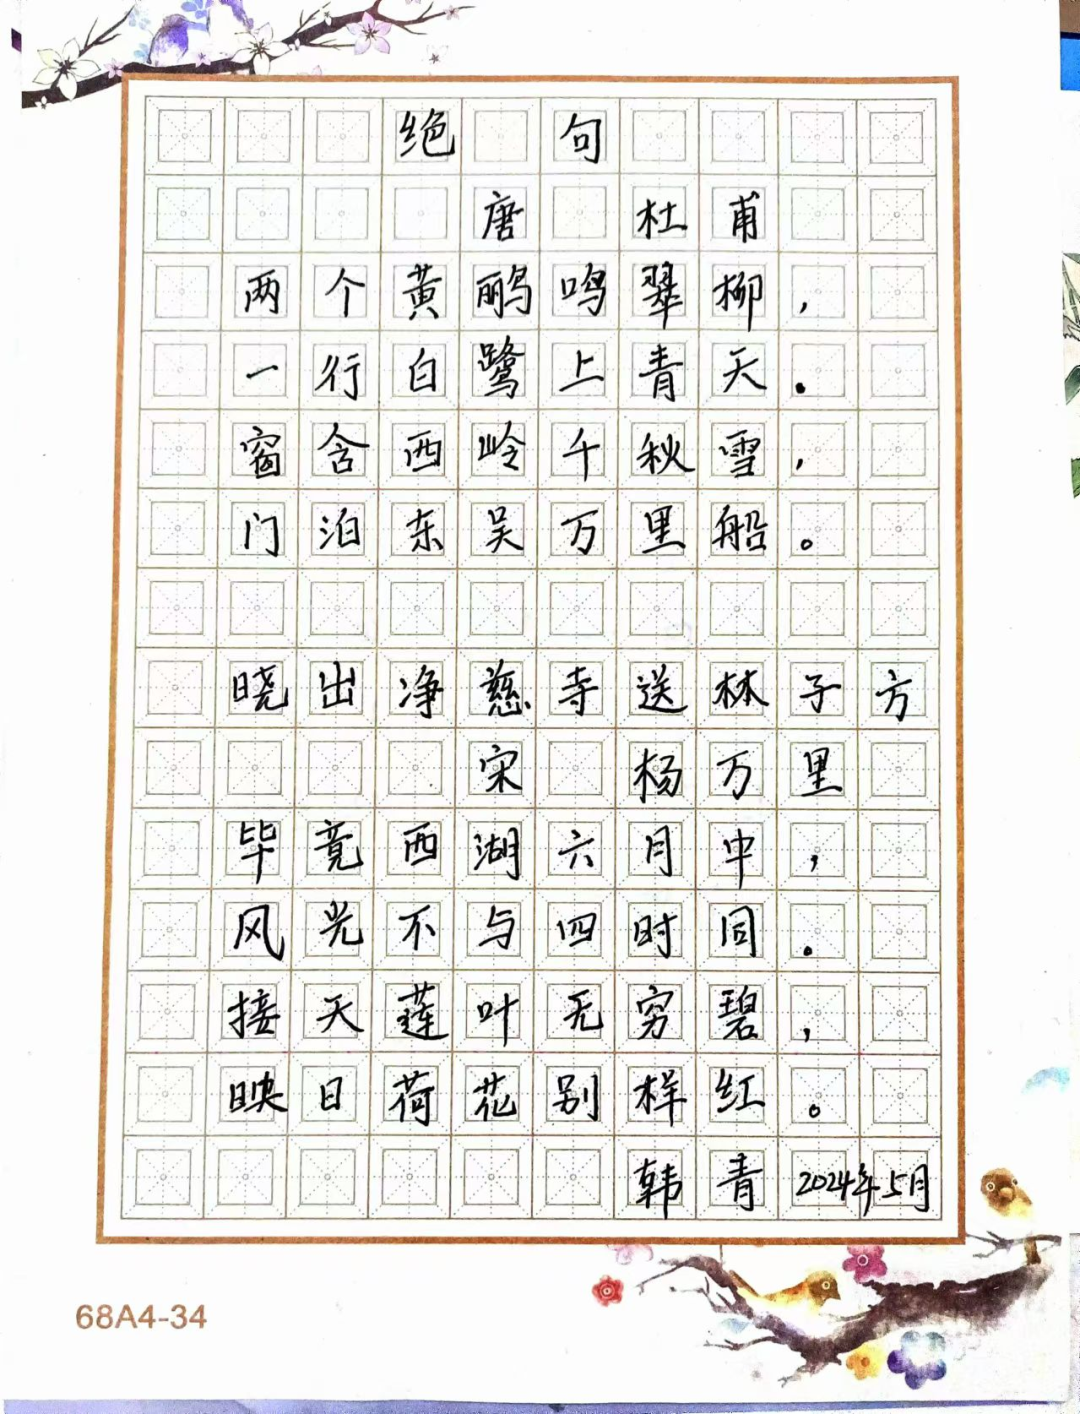 绝句
唐 杜甫
两个黄鹂鸣翠柳，
一行白鹭上青天。
窗含西岭千秋雪，
门泊东吴万里船。
晓出净慈寺送林子方
宋 杨万里
毕竟西湖六月中，
风光不与四时同。
接天莲叶无穷碧，
映日荷花别样红。
韩青 2024年5月
68A4-34